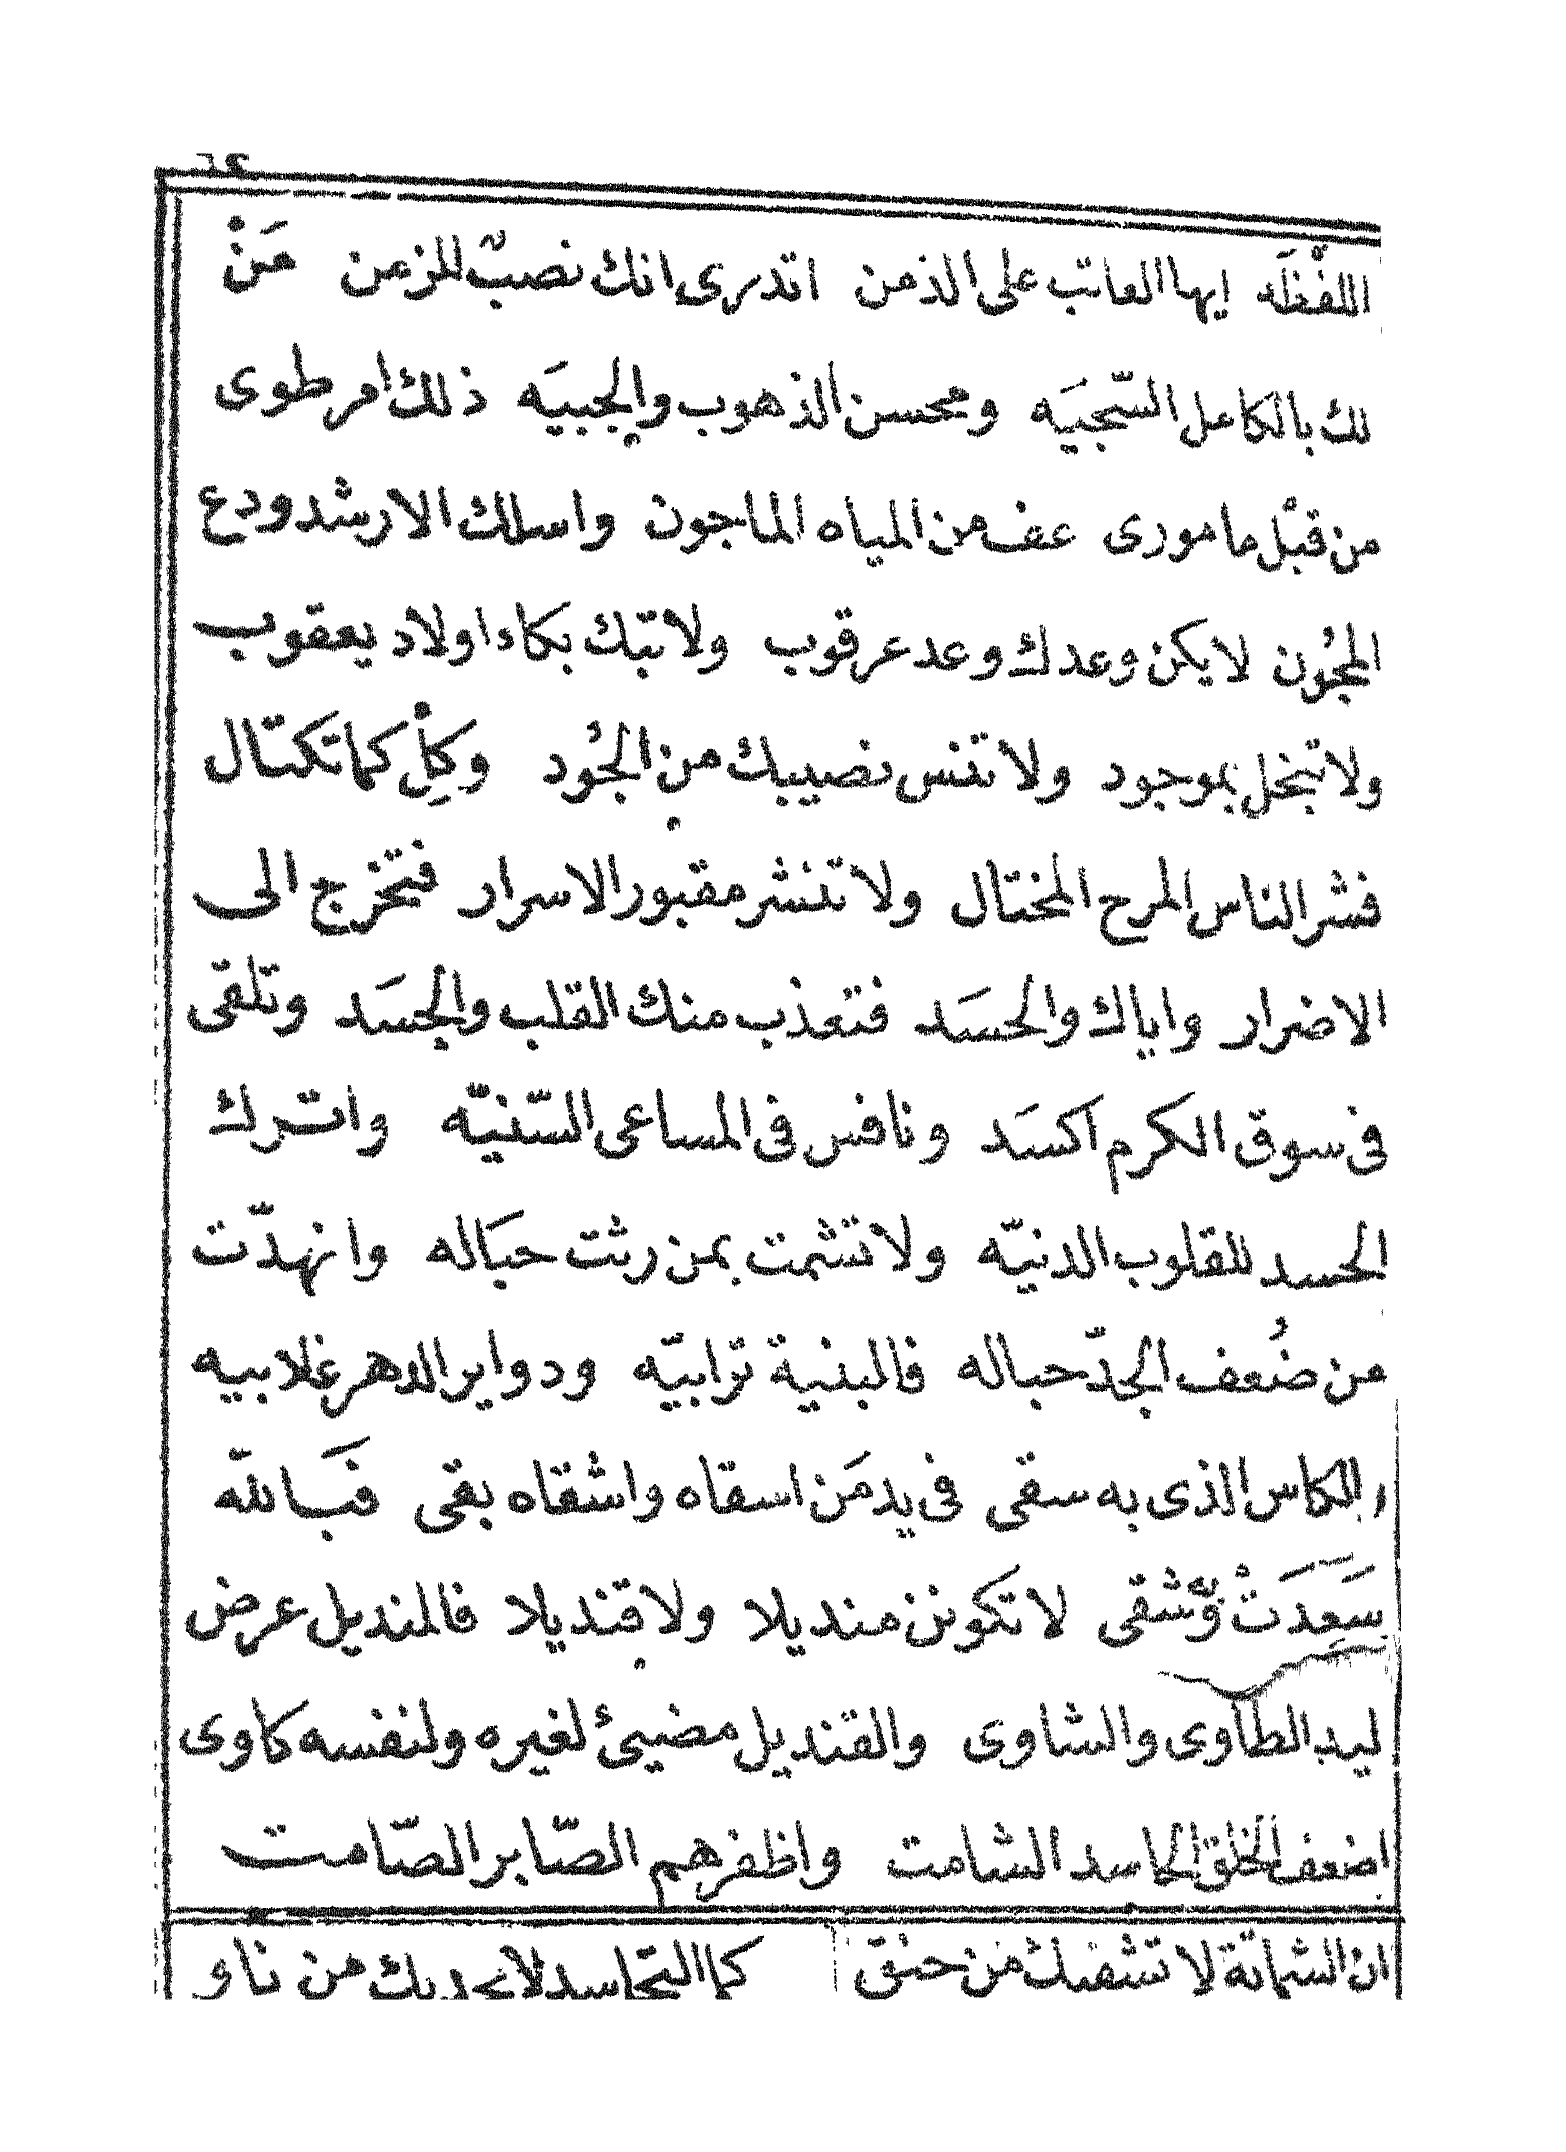 اللفْظَه ايها العاتب على الذمن اتدرى انك نصبٌ للمزمن مَنْ
لك بالكامل السّجيَه ومحسن الذهوب والجبيَه ذلك امر طوى
من قبْل مامورى عف من المياه الماجون واسلك الارشد ودع
المجُون لايكن وعدك وعد عرقوب ولا تبك بكاء اولاد يعقوب
ولا تبخل بموجود ولا تنس نصيبك من الجُود وكِلْ كما تكتال
فشر الناس المرح المختال ولا تنشر مقبور الاسرار فتخرج الى
الاضرار واياك والحسَد فتعذب منك القلب والجسَد وتلقى
فى سوق الكرم اكسَد ونافس فى المساعى السّنيّه واترك
الحسد للقلوب الدنيّه ولا تشمت بمن رثت حبَاله وانهدّت
من ضُعف الجدّ حباله فالبنية ترّابيّه ودواير الدهر غلابيه
والكاس الذى به سقى فى يد مَن اسقاه واشقاه بقى فبَالله
سَعِدَتْ وشقى لا تكونن منديلا ولا قنديلا فالمنديل عرض
ليد الطاوى والشاوى والقنديل مضيئ لغيره ولنفسه كاوى
اضعف الخلق الحاسد الشامت واظفرهم الصّابر الصّامت
ان الشماتة لا تشفيك من حنق كما التحاسد لا يدريك من ناء